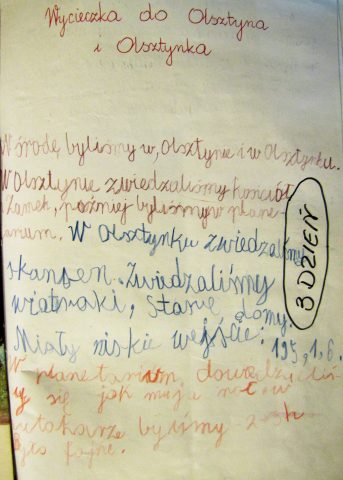 Wycieczka do Olsztyna
i Olsztynka
W środę byliśmy w, Olsztynie i w Olsztynku.
W Olsztynie zwiedzaliśmy kościół
Zamek, później byliśmy w plane-
tarium. W Olsztynku zwiedzaliśmy
skansen. Zwiedzaliśmy
wiatraki, stare domy.
Miały niskie wejście: 195,1,6.
W planetarium, dowiedzieliś
my się jak
byliśmy
było fajne.
3 DZIEŃ